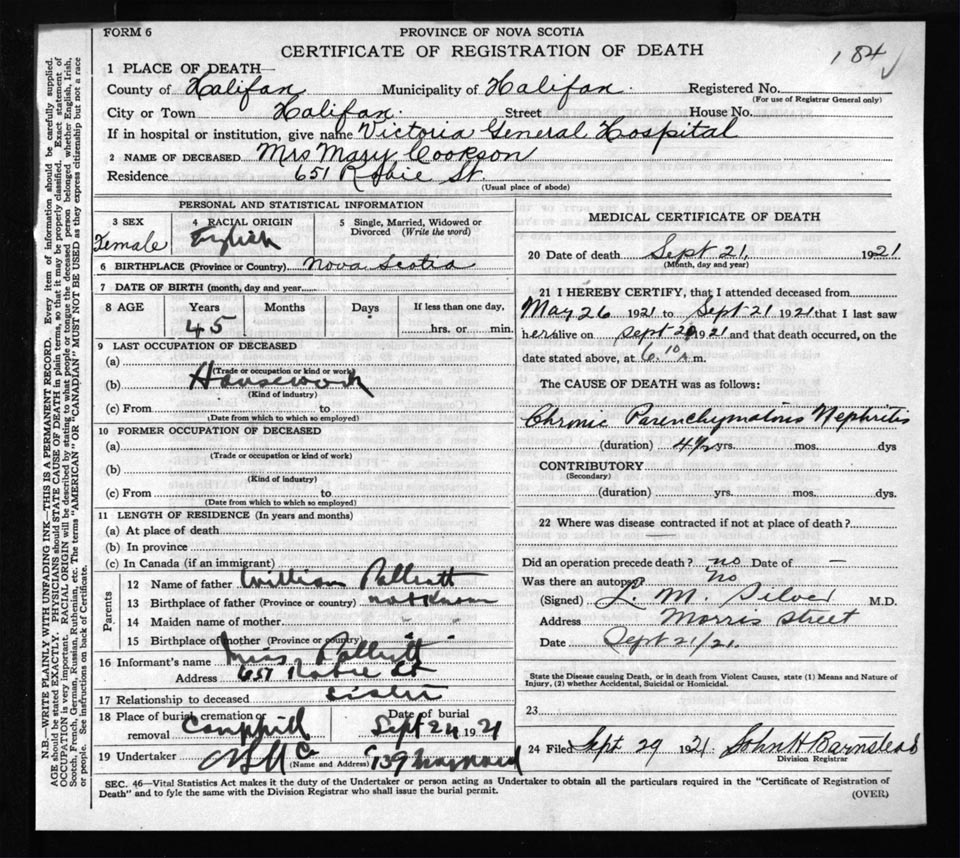 FORM 6
PROVINCE OF NOVA SCOTIA
CERTIFICATE OF REGISTRATION OF DEATH
184
1 PLACE OF DEATH—
County of Halifax Municipality of Halifax Registered No.
(For use of Registrar General only)
City or Town Halifax Street House No.
If in hospital or institution, give name Victoria General Hospital
2 NAME OF DECEASED Mrs Mary Cookson
Residence 651 Robie St.
(Usual place of abode)
PERSONAL AND STATISTICAL INFORMATION
3 SEX Female
4 RACIAL ORIGIN English
5 Single, Married, Widowed or Divorced (Write the word)
6 BIRTHPLACE (Province or Country) Nova Scotia
7 DATE OF BIRTH (month, day and year)
8 AGE Years Months Days If less than one day,
45 hrs. or min.
9 LAST OCCUPATION OF DECEASED
(a)
(Trade or occupation or kind of work)
(b) Housework
(Kind of industry)
(c) From to
(Date from which to which so employed)
10 FORMER OCCUPATION OF DECEASED
(a)
(Trade or occupation or kind of work)
(b)
(Kind of industry)
(c) From to
(Date from which to which so employed)
11 LENGTH OF RESIDENCE (In years and months)
(a) At place of death
(b) In province
(c) In Canada (if an immigrant)
Parents
12 Name of father William
13 Birthplace of father (Province or country) not known
14 Maiden name of mother
15 Birthplace of mother (Province or country)
16 Informant's name Miss
Address 651 Robie St
17 Relationship to deceased Sister
18 Place of burial, cremation or removal Camphill Date of burial Sept 24 1921
19 Undertaker (Name and Address) 139
MEDICAL CERTIFICATE OF DEATH
20 Date of death Sept 21, 1921
(Month, day and year)
21 I HEREBY CERTIFY, that I attended deceased from
May 26 1921 to Sept 21 1921 that I last saw
her alive on Sept 20 1921 and that death occurred, on the
date stated above, at 6.10 A.m.
The CAUSE OF DEATH was as follows:
Chronic Parenchymatous Nephritis
(duration) 4½ yrs. mos. dys
CONTRIBUTORY
(Secondary)
(duration) yrs. mos. dys.
22 Where was disease contracted if not at place of death?
Did an operation precede death? no Date of —
Was there an autopsy? no
(Signed) L. M. Silver M.D.
Address Morris Street
Date Sept 21/21.
State the Disease causing Death, or in death from Violent Causes, state (1) Means and Nature of Injury, (2) whether Accidental, Suicidal or Homicidal.
23
24 Filed Sept 29 1921 John H Barnstead
Division Registrar
SEC. 46—Vital Statistics Act makes it the duty of the Undertaker or person acting as Undertaker to obtain all the particulars required in the "Certificate of Registration of
Death" and to fyle the same with the Division Registrar who shall issue the burial permit.
(OVER)
N.B.—WRITE PLAINLY WITH UNFADING INK—THIS IS A PERMANENT RECORD. Every item of information should be carefully supplied.
AGE should be stated EXACTLY. PHYSICIANS should STATE CAUSE OF DEATH in plain terms, so that it may be properly classified. Exact statement of
OCCUPATION is very important. RACIAL ORIGIN will be described by stating to what people or tongue the deceased person belonged whether English, Irish,
Scotch, French, German, Russian, Ruthenian, etc. The terms "AMERICAN" OR "CANADIAN" MUST NOT BE USED as they express citizenship but not a race
or people. See instructions on back of Certificate.